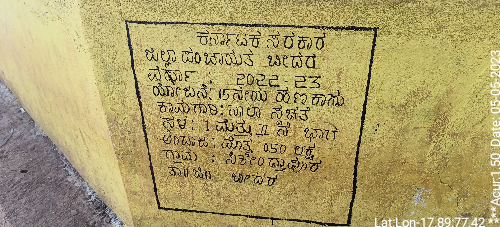 ಕರ್ನಾಟಕ ಸರಕಾರ
ಜಿಲ್ಲಾ ಪಂಚಾಯತ ಬೀದರ
ವರ್ಷ : 2022-23
ಯೋಜನೆ: 15ನೇಯ ಹಣಕಾಸು
ಕಾಮಗಾರಿ: ನಾಲಾ
ಸ್ಥಳ: 1 ಮತ್ತು II ನೆ ಭಾಗ
ಅಂದಾಜು ಮೊತ್ತ 0.50 ಲಕ್ಷ
ಗ್ರಾಮ :
ತಾ:ಜಿ: ಬೀದರ
Date:05-05-2023
Lat:Lon-17.89:77.42